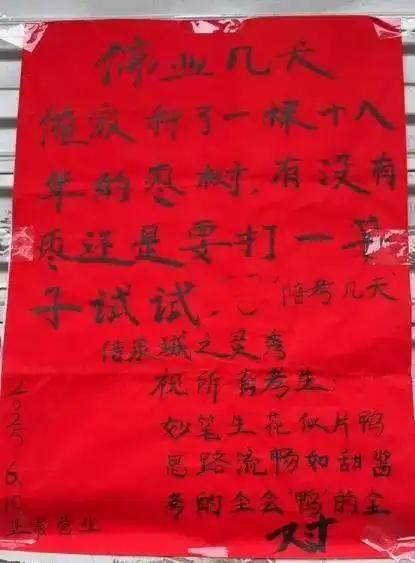 停业几天
俺家种了一棵十八
年的枣树，有没有
枣还是要打一竿
子试试.
陪考几天
借泉城之灵秀
祝所有考生：
妙笔生花似片鸭
思路流畅如甜酱
考的全会“鸭”的全
对
2025
6.10
正常营业